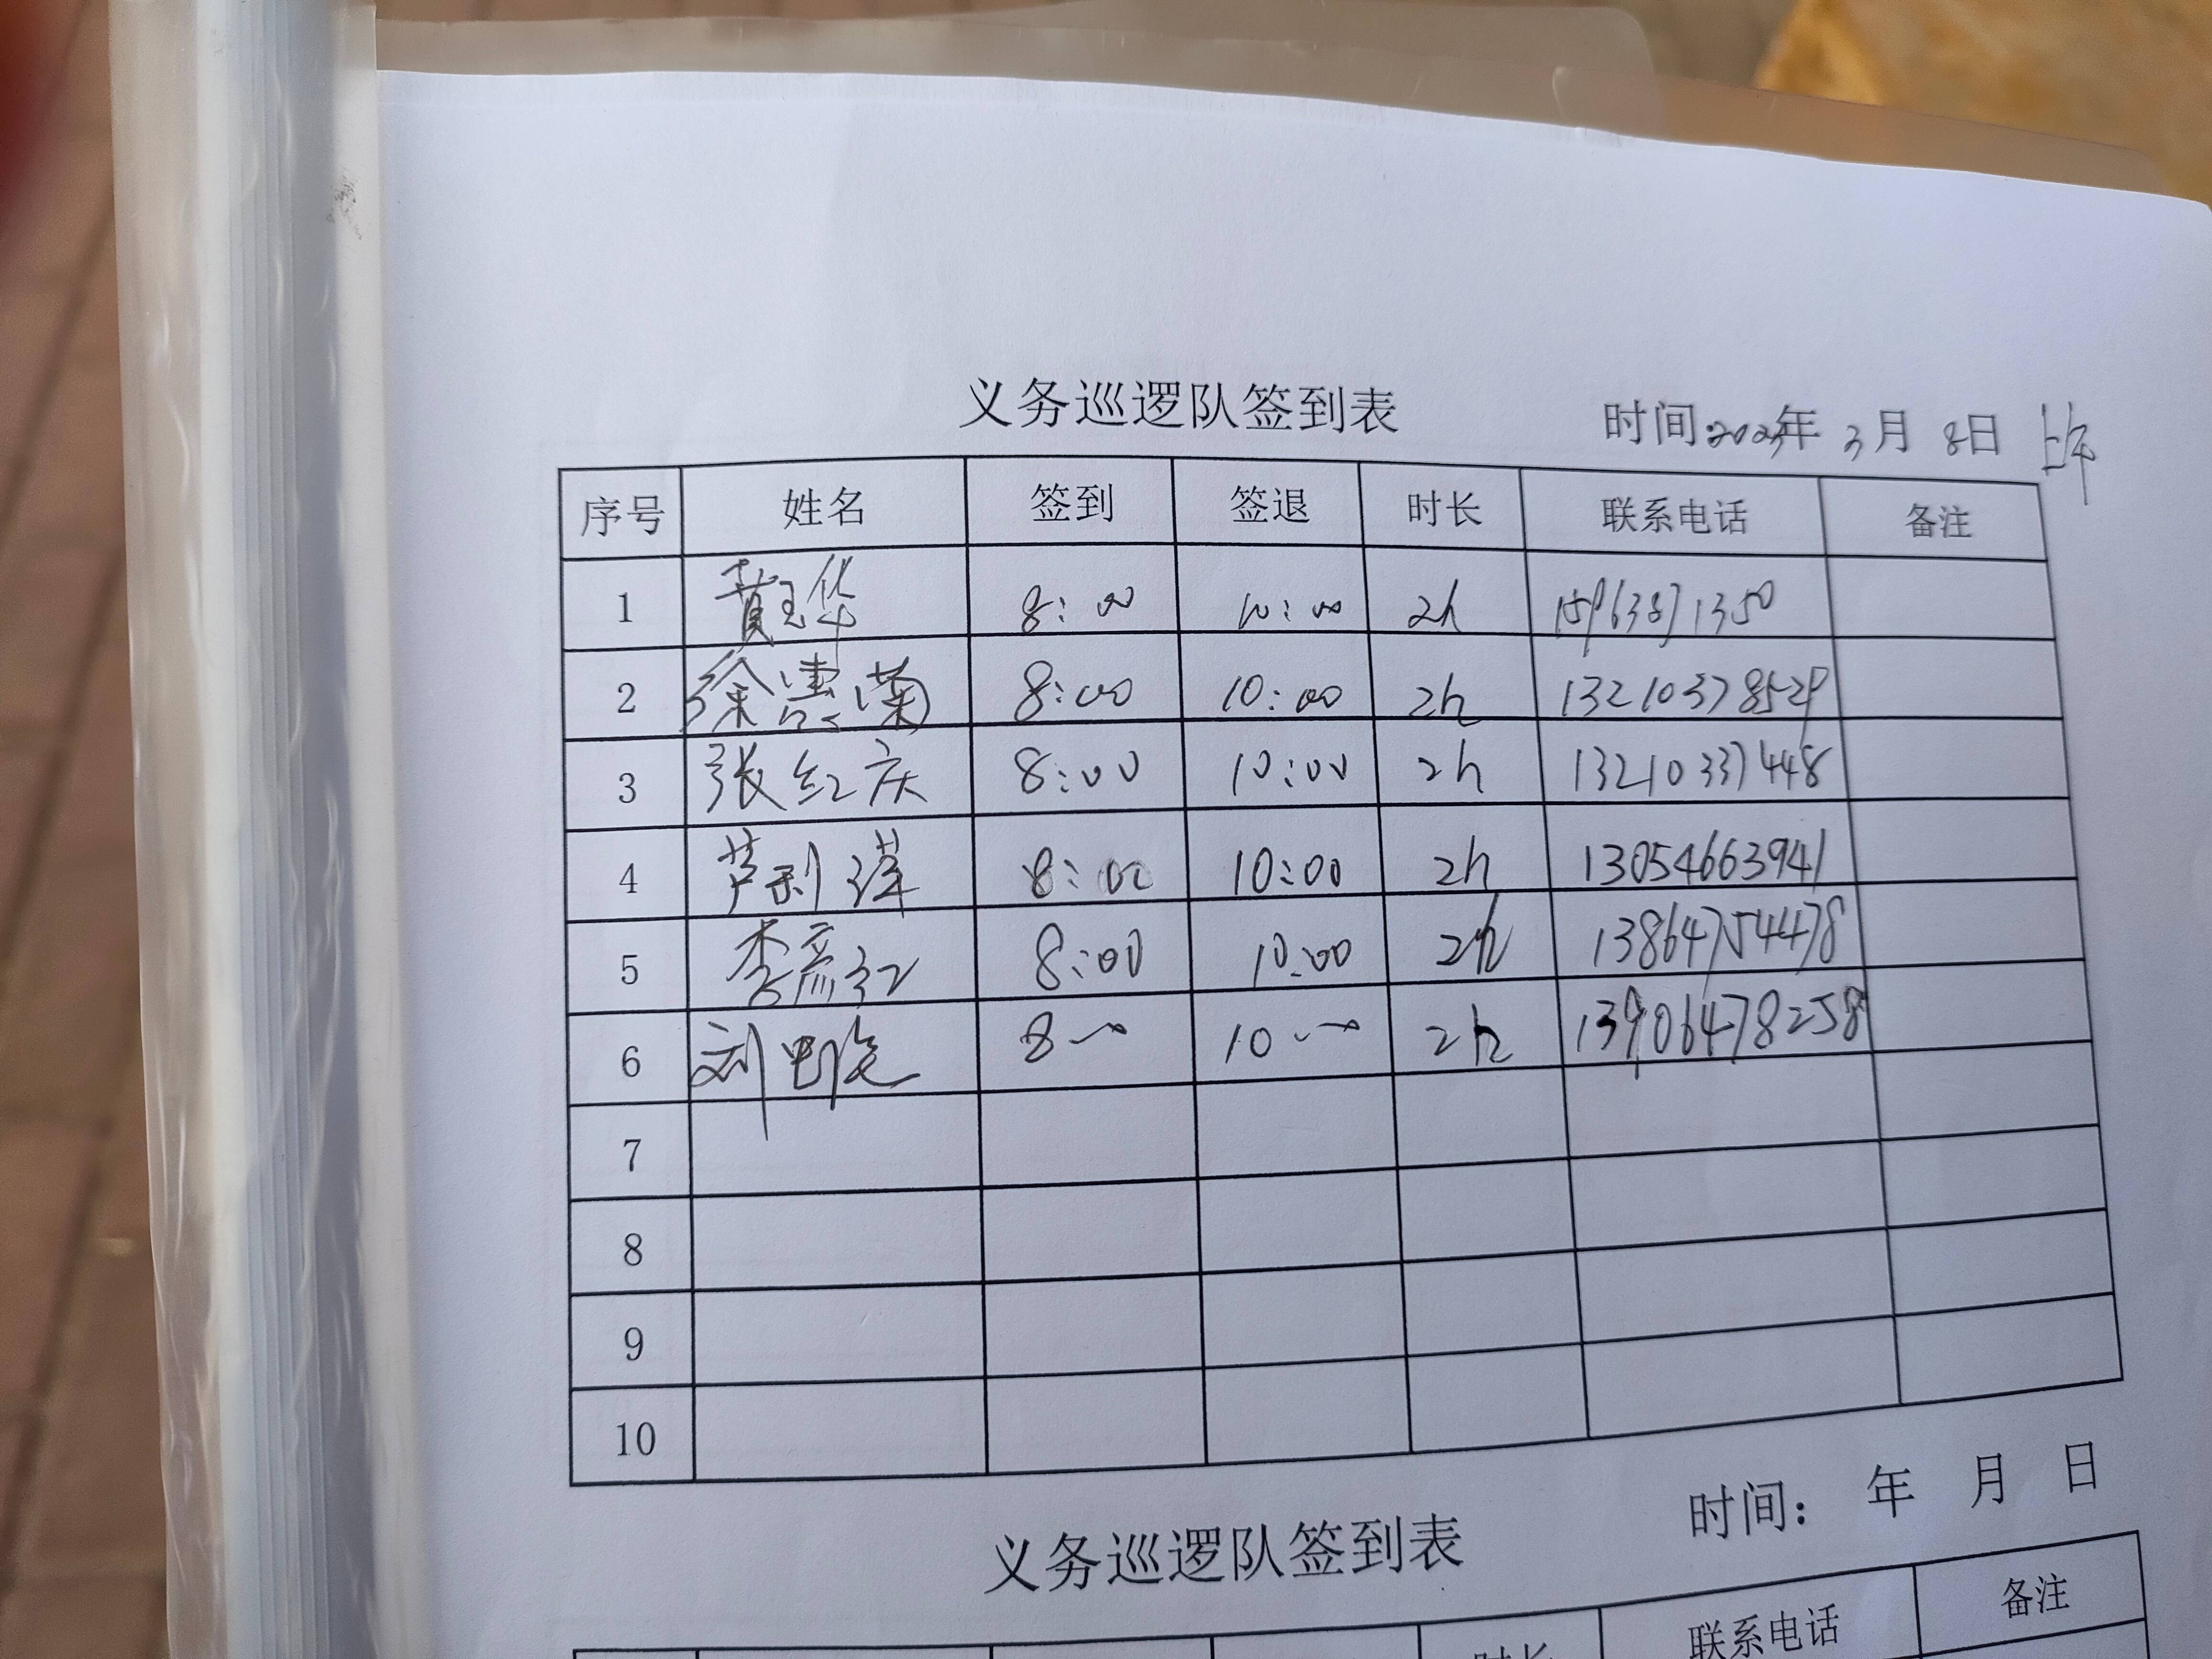 义务巡逻队签到表 时间2023年 3月 8日 上午
序号 姓名 签到 签退 时长 联系电话 备注
1 黄玉华 8:00 10:00 2h 15963871350
2 徐惠菊 8:00 10:00 2h 13210378529
3 张红庆 8:00 10:00 2h 13210337448
4 芦利 8:00 10:00 2h 13054663941
5 李彦红 8:00 10:00 2h 13864754478
6 刘 8 10 2h 13906478258
7
8
9
10
义务巡逻队签到表 时间: 年 月 日
时长 联系电话 备注